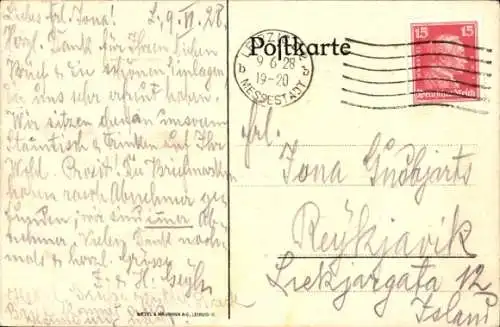 Liebes Frl. Jona! L., 9.VI.28.
Herzl. Dank für Ihren lieben
Brief & die schönen Einlagen
die uns sehr erfreut haben.
Wir sitzen eben an unserem
Stammtisch & trinken auf Ihr
Wohl. Prosit! Die Briefmarken
haben rasch Abnehmer ge-
funden, wir sind immer Ab-
nehmer. Vielen Dank noch-
mals & herzl. Grüsse
F. & H.
Postkarte
LEIPZIG
9 6 28
19-20
MESSESTADT
15 15
Deutsches Reich
Frl.
Jona Gudbjarts
Reykjavik
Lækjargata 12
Island